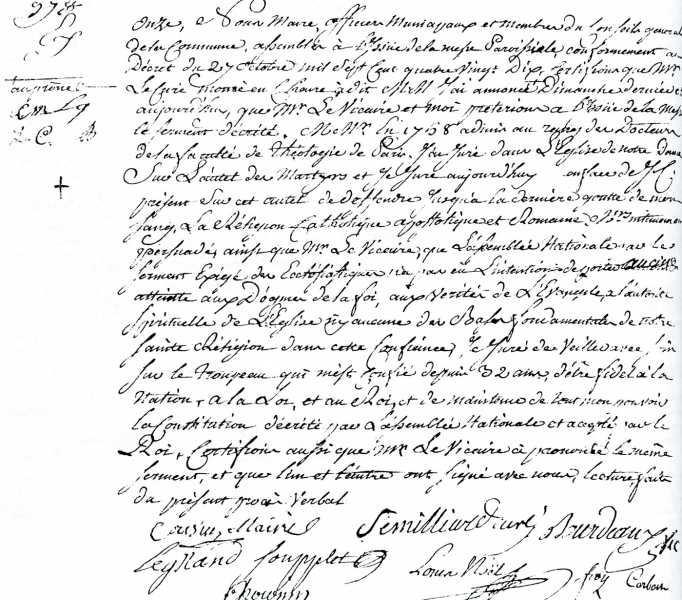 onze, Nous Maire, officiers Municipaux et membres du Conseils general
de la Commune, assemblés à L'issüe de la messe Paroissiale conformement au
Décret du 27 octobre mil sept Cent quatre vingt Dix, Certifions que Mr
Le Curé monté en Chaire, a dit M.M. J'ai annoncé Dimanche dernier et
aujourdhui, que Mr Le Vicaire et moi preterions a L'issüe de la Messe
le serment décrété. Mr. en 1758 admis au des Docteurs
de la faculté de Théologie de Paris. J'ay Juré dans L'Eglise de notre Dame
Sur L'autel des Martyrs et Je Jure aujourdhuy en face de J.C.
présent sur cet autel de deffendre Jusqu'a la derniére goutte de mon
sang, La Réligion Catholique apostolique et Romaine. intimement
persuadé, ainsi que Mr Le Vicaire, que L'assemblée Nationale par le
serment Exigé des Ecclésiastiques n'a pas eu L'intention de porter aucune
atteinte aux Dogmes de la foi, aux verités de L'Evangile, a l'autorité
spirituelle de L'Eglise ny aucune des Bases fondamentales de notre
sainte Réligion dans cette Confiance, Je Jure de Veiller avec soin
sur le troupeau qui m'est Confié depuis 32 ans, d'être fidel à la
Nation, a la Loi, et au Roi, et de maintenir de tout mon pouvoir
la Constitution décrété par L'assemblée Nationale et accepté par le
Roi, Certifions aussi que Mr Le Vicaire à prononcé le même
serment, et que l'un et l'autre ont signé avec nous, lecture faite
du présent procès Verbal
Maire Semilliard Curé Bourdeaux vic
Legrand Souppelot Louis Noël Corbon